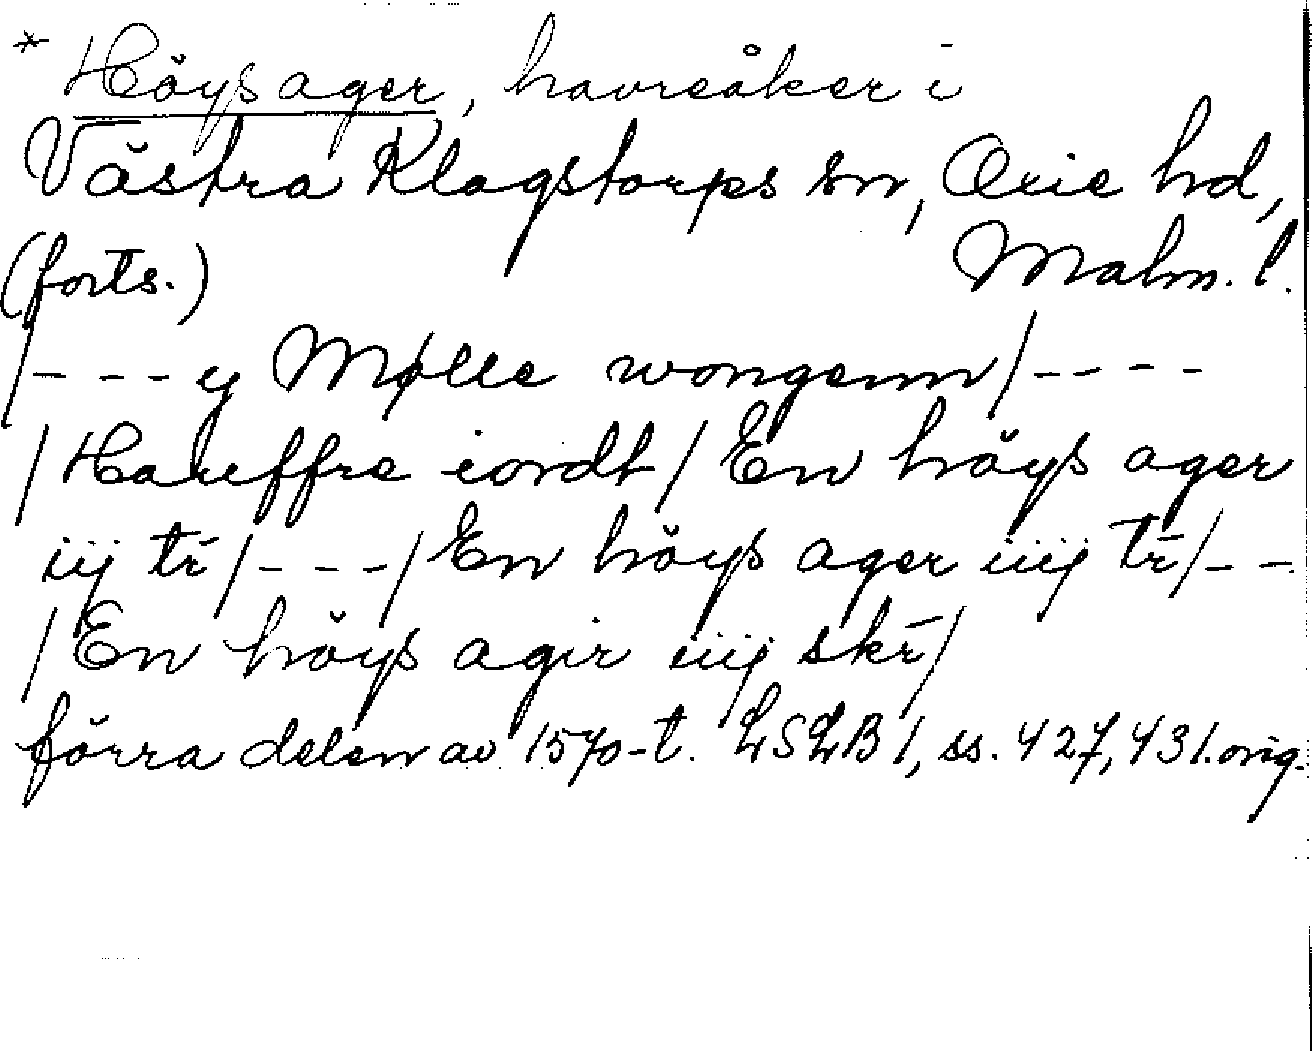 * Höÿs ager, havreåker i
Västra Klagstorps sn, Oxie hd,
(forts.) Malm. l.
/- - - y Mølle wongenn/- - - -
/Hauffre iordt/ En höÿs ager
iij tr̄/- - -/ En höÿs ager iiij tr̄/- -
/En höÿs agir iiij skr̄/
förra delen av 1570-t. LSLB 1, ss. 427, 431. orig.